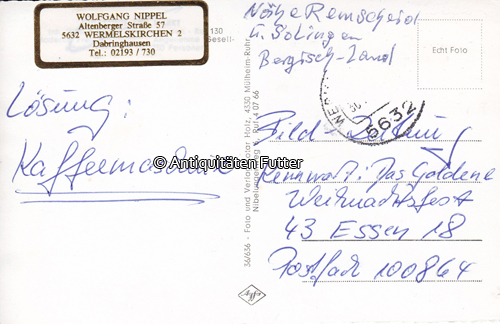 WOLFGANG NIPPEL
Altenberger Straße 57
5632 WERMELSKIRCHEN 2
Dabringhausen
Tel.: 02193 / 730
130
Gesell-
Nähe Remscheid
u. Solingen
Bergisch-Land
Echt Foto
Lösung:
© Antiquitäten Futter
36/636 - Foto und Verlag
Holz, 4330 Mülheim-Ruhr
Nibelungen
Ruf 4 07 66
5632
Bild-Zeitung
Kennwort: Das Goldene
Weihnachtsfest
43 Essen 18
Postfach 100864
Agfa